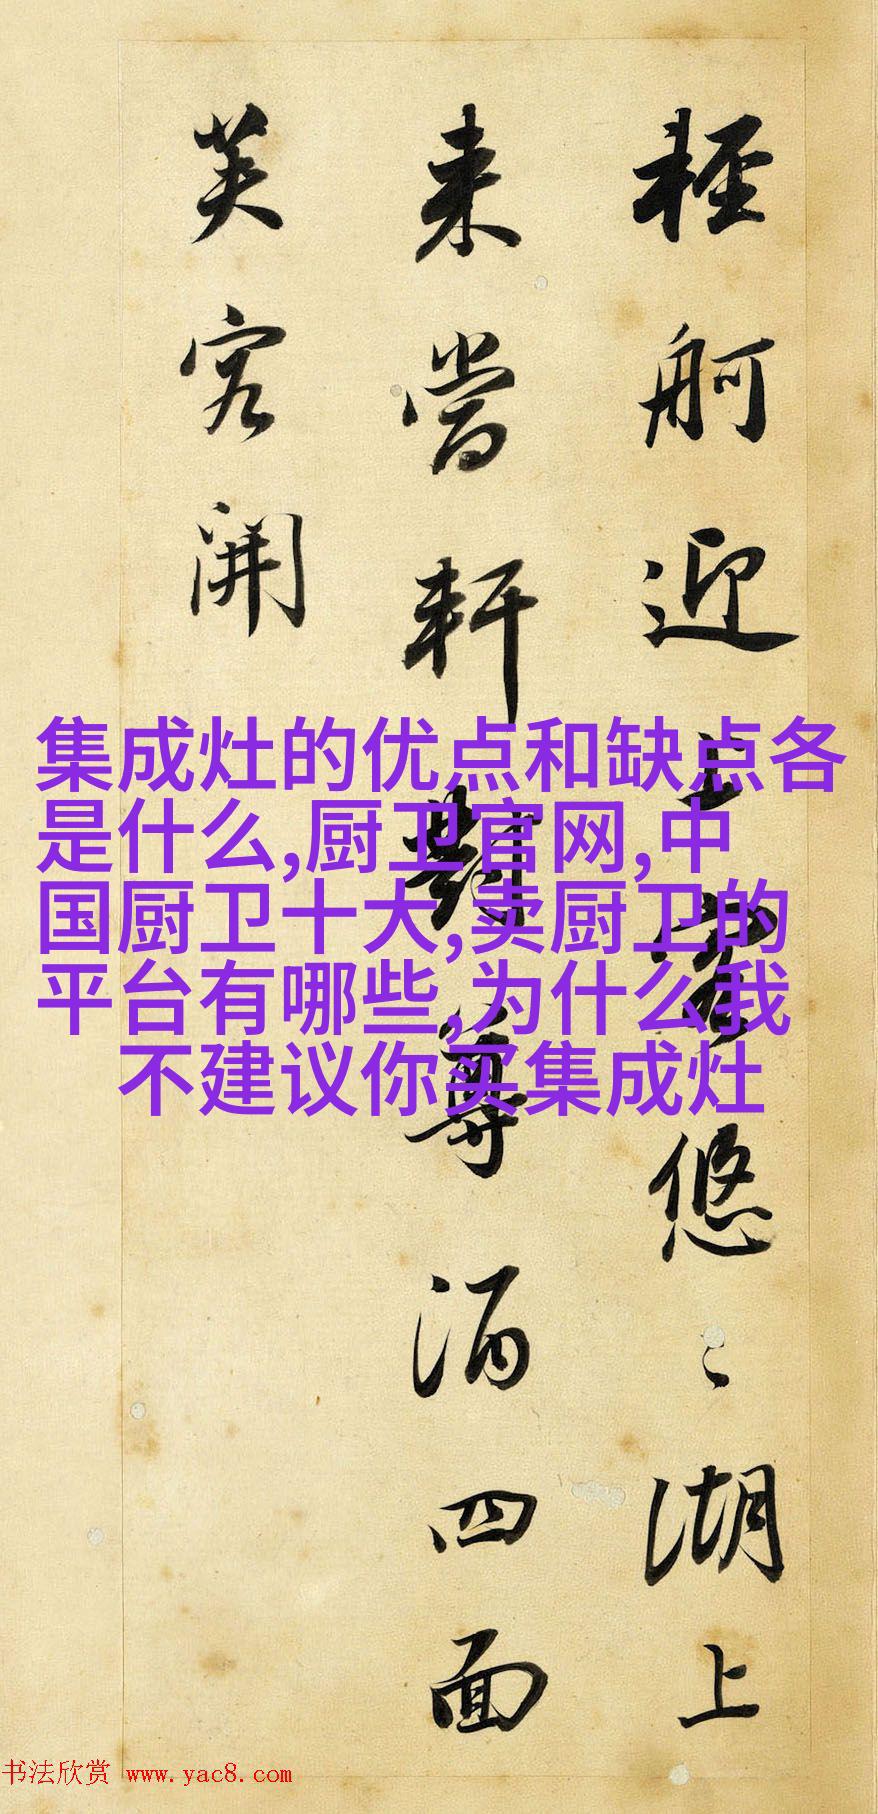 輕舸迎上客悠々湖上
来當軒對尊酒四面
芙容開
集成灶的优点和缺点各
是什么,厨卫官网,中
国厨卫十大,卖厨卫的
平台有哪些,为什么我
不建议你买集成灶
书法欣赏 www.yac8.com